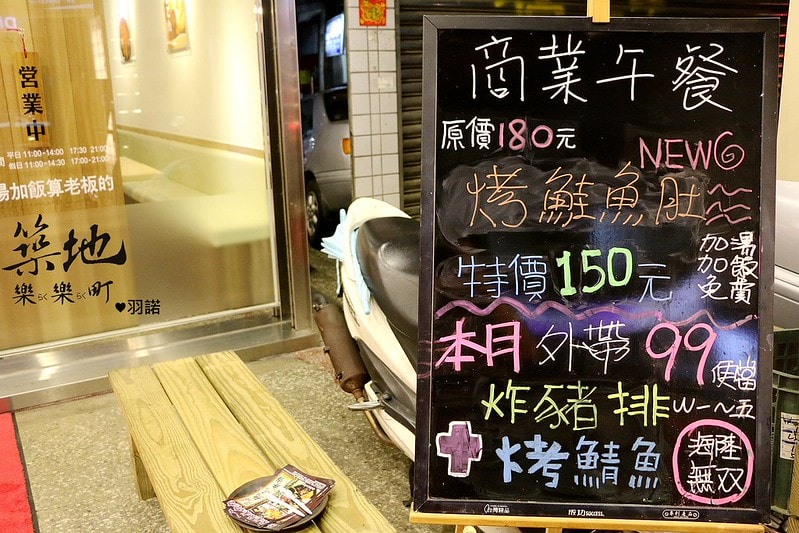 營業中
平日11:00-14:00 17:30 21:00
假日11:00-14:30 17:00-21:00
湯加飯算老板的
築地
樂らく樂らく町
♥羽諾
商業午餐
原價180元
NEW
烤鮭魚肚
特價150元
湯飯費
加加免
本月外帶99便當
炸豬排 W一~五
+烤鯖魚
海陸無双
成功 SUCCESS.